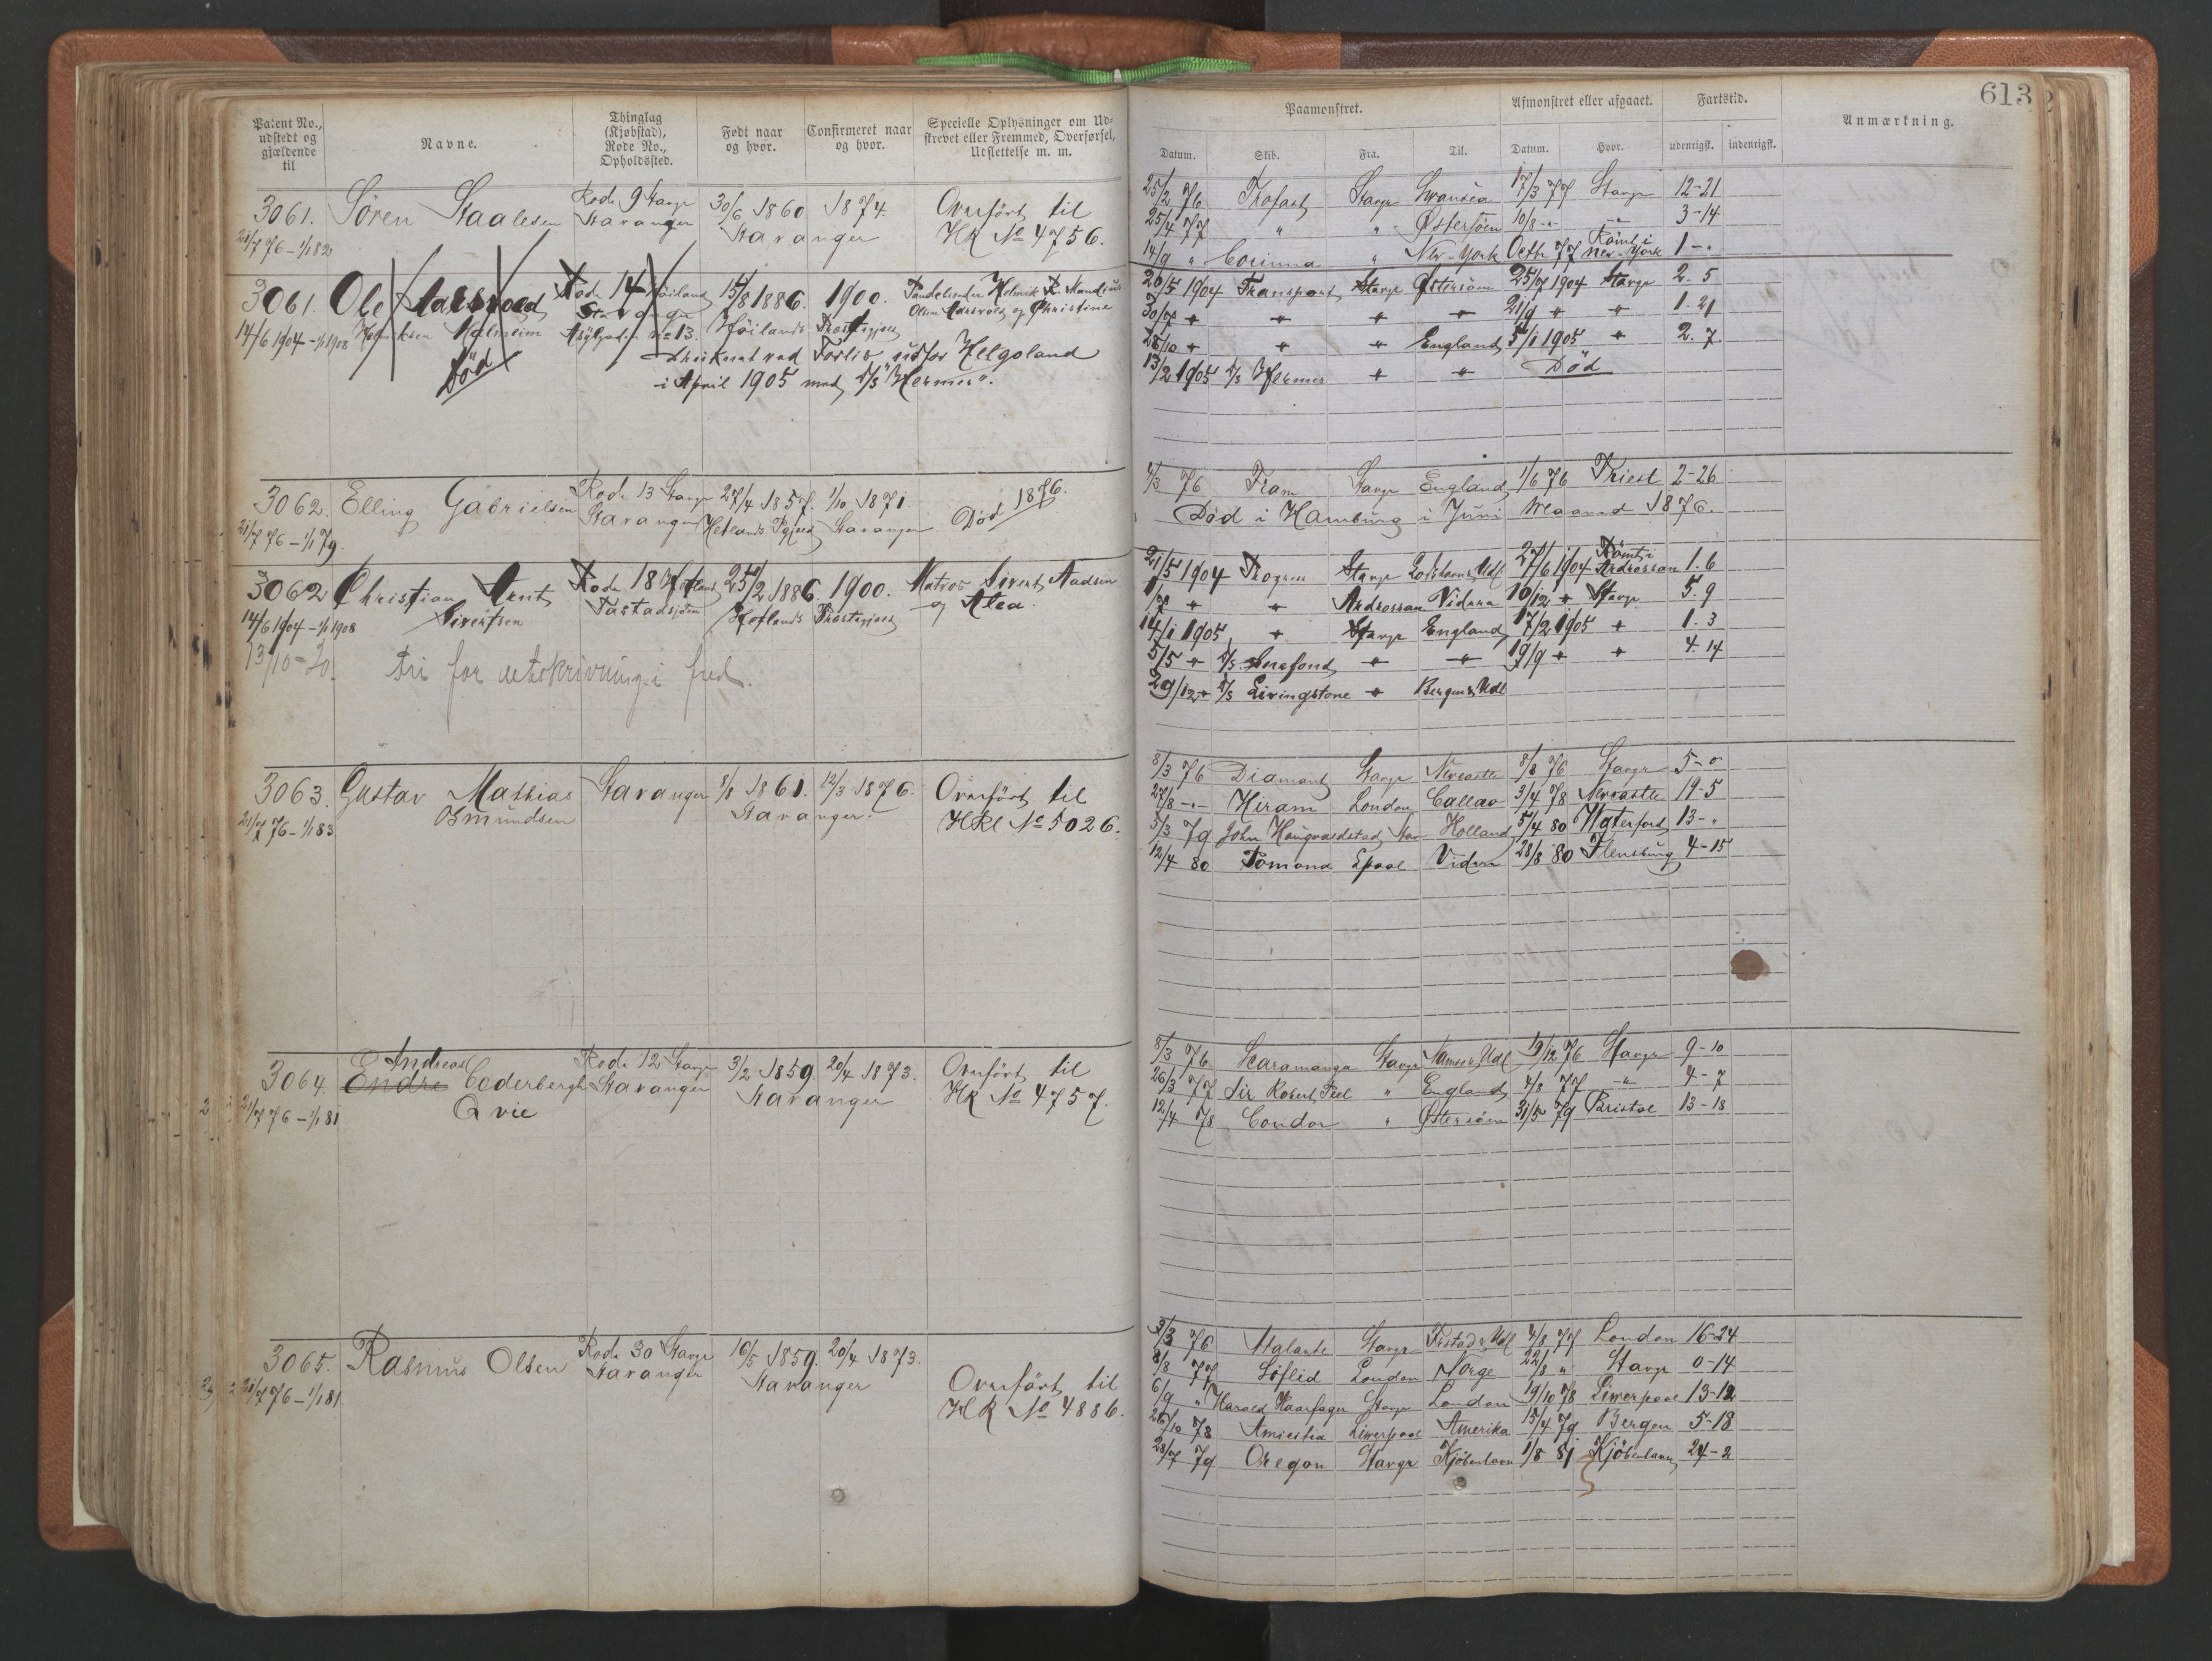 613
Patent No., udstedt og gjældende til
Navne.
Thinglag (Kjøbstad), Rode No., Opholdssted.
Født naar og hvor.
Confirmeret naar og hvor.
Specielle Oplysninger om Udstrevet eller Fremmed, Overførsel, Udslettelse m. m.
Paamønstret.
Afmønstret eller afgaaet.
Fartstid.
Anmærkning.
Datum. Skib. Fra. Til. Datum. Hvor. udenrigsk. indenrigsk.
3061. Sören Staalesen Rode 9 Stavgr 30/6 1860 1874. Overfört til
21/7 76 - 1/1 82 Stavanger Stavanger HR No 4756.
25/2 76 Trofast Stavgr Swansea 17/3 77 Stavgr 12-21
25/4 77 " " Østersöen 10/8 -"- -"- 3-14
14/9 " Corinna " New-York Octbr 77 Römt i New-York 1-"
3061. Ole Aarsvold Rode 14 Höiland 15/8 1886. 1900.
Stavanger
14/6 1904 - 1/1 1908 Malmeim Asylgaden No 13. Höilands Præstegjæld Olene Aarsvold og Christine
Død
Druknet ved Forlis udfor Helgoland
i April 1905 med D/S "Hermes".
20/5 1904 Transport Stavgr Østersöen 25/7 1904 Stavgr 2. 5
30/7 " " " " 21/9 " " 1. 21
28/10 " " " England 5/1 1905 " 2. 7
13/2 1905 D/S Hermes " " Død
3062. Elling Gabrielsen Rode 13 Stavgr 27/4 1857. 1/10 1871. Död 1876.
21/7 76 - 1/1 79. Stavanger Hetlands Pgjæld Stavanger
4/3 76 Fram Stavgr England 1/6 76 Triest 2-26
Död i Hamburg i Juni Maaned 1876.
3062 Christian Arnt Rode 18 Hetland 25/2 1886. 1900. Matros Sivert Aadsen
14/6 1904 - 1/1 1908 Sivertsen Tastadsjöen Hetlands Præstegjæld og Alea.
13/10-20. fri for utskrivning i fred.
21/5 1904 Prögres Stavgr Udl 27/6 1904 Römt i Ardrossan 1. 6
1/7 " " Ardrossan Videre 10/12 " Stavgr 5. 9
14/1 1905 " Stavgr England 17/2 1905 " 1. 3
5/5 " D/S " " 19/9 " " 4. 14
29/12 " D/S Livingstone " Bergen & Udl
3063. Gustav Mathias Stavanger 8/8 1861. 12/3 1876. Overfört til
21/7 76 - 1/1 83 Osmundsen Stavanger. HR No 5026.
8/3 76 Diamant Stavgr Newcastle 8/8 76 Stavgr 5-0
27/8 -"- Hiram London Callao 3/4 78 Newcastle 19-5
5/3 79 John Haugvaldstad Stav Holland 5/4 80 Waterford 13-"
12/4 80 Pomona Lpool Videre 28/8 80 Flensburg 4-15
3064. Endre Andreas Cederbergh Rode 12 Stavgr 3/2 1859. 20/4 1873. Overfört til
21/7 76 - 1/1 81 Qvie Stavanger Stavanger HR No 4757.
8/3 76 Scaramanga Stavgr Namsos, Udl 19/12 76 Stavgr 9-10
26/3 77 Sir Robert Peel " England 4/8 77 -"- 4-7
12/4 78 Condor " Østersöen 31/5 79 Bristol 13-18
3065. Rasmus Olsen Rode 30 Stavgr 16/5 1859. 20/4 1873. Overfört til
21/7 76 - 1/1 81 Stavanger Stavanger HR No 4886.
3/3 76 Atalante Stavgr Udl 4/8 77 London 16-24
8/8 77 Löflid London Norge 22/8 " Stavgr 0-14
6/9 " Harald Haarfager Stavgr London 19/10 78 Liverpool 13-12
26/10 78 Amicitia Liverpool Amerika 15/4 79 Bergen 5-18
28/7 79 Oregon Stavgr Kjöbenhavn 1/8 81 Kjöbenhavn 24-2